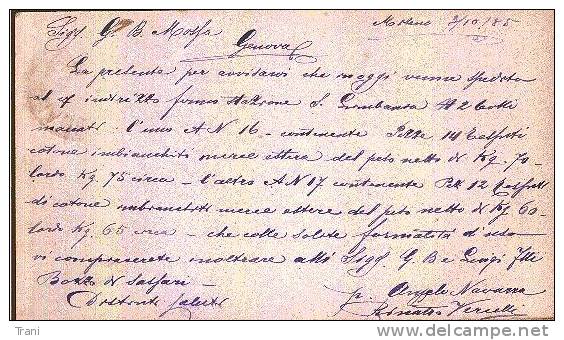 Sigg. G. B. Mosfa
Milano 2/10/85
Genova
La presente per avvisarvi che oggi venne spedito
al indirizzo fermo stazione S. 2 Colli
marcati. l'uno A N 16 - contenente Pezze 14 Tessuti
cotone imbianchiti merce estera del peso netto di Kg. 70 -
lordo Kg. 75 circa - l'altro A N 17 contenente Pez 12 Tessuti
di cotone imbianchiti merce estera del peso netto di Kg 60 -
lordo Kg. 65 circa - che colle solite formalità d'uso
vi compiacerete inoltrare alli Sigg. G. B e Luigi Flli
Bozzo di Sassari -
Distinti Saluti
p. Angelo Navarra
Vercelli
Trani
www.delcampe.net